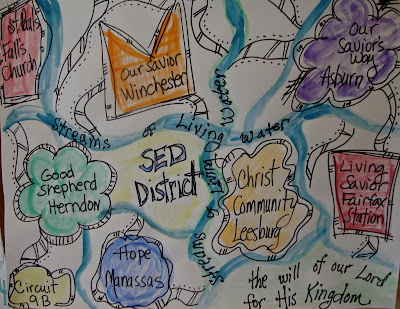 St. Paul's
Fall's
Church
Our Savior
Winchester
Our
Savior's
Way
Asburn
Streams of Living Water
Streams of Living Water
Good
Shepherd
Herndon
SED
District
Christ
Community
Leesburg
Living
Savior
Fairfax
Station
Hope
Manassas
Circuit
9B
the will of our Lord
for His Kingdom